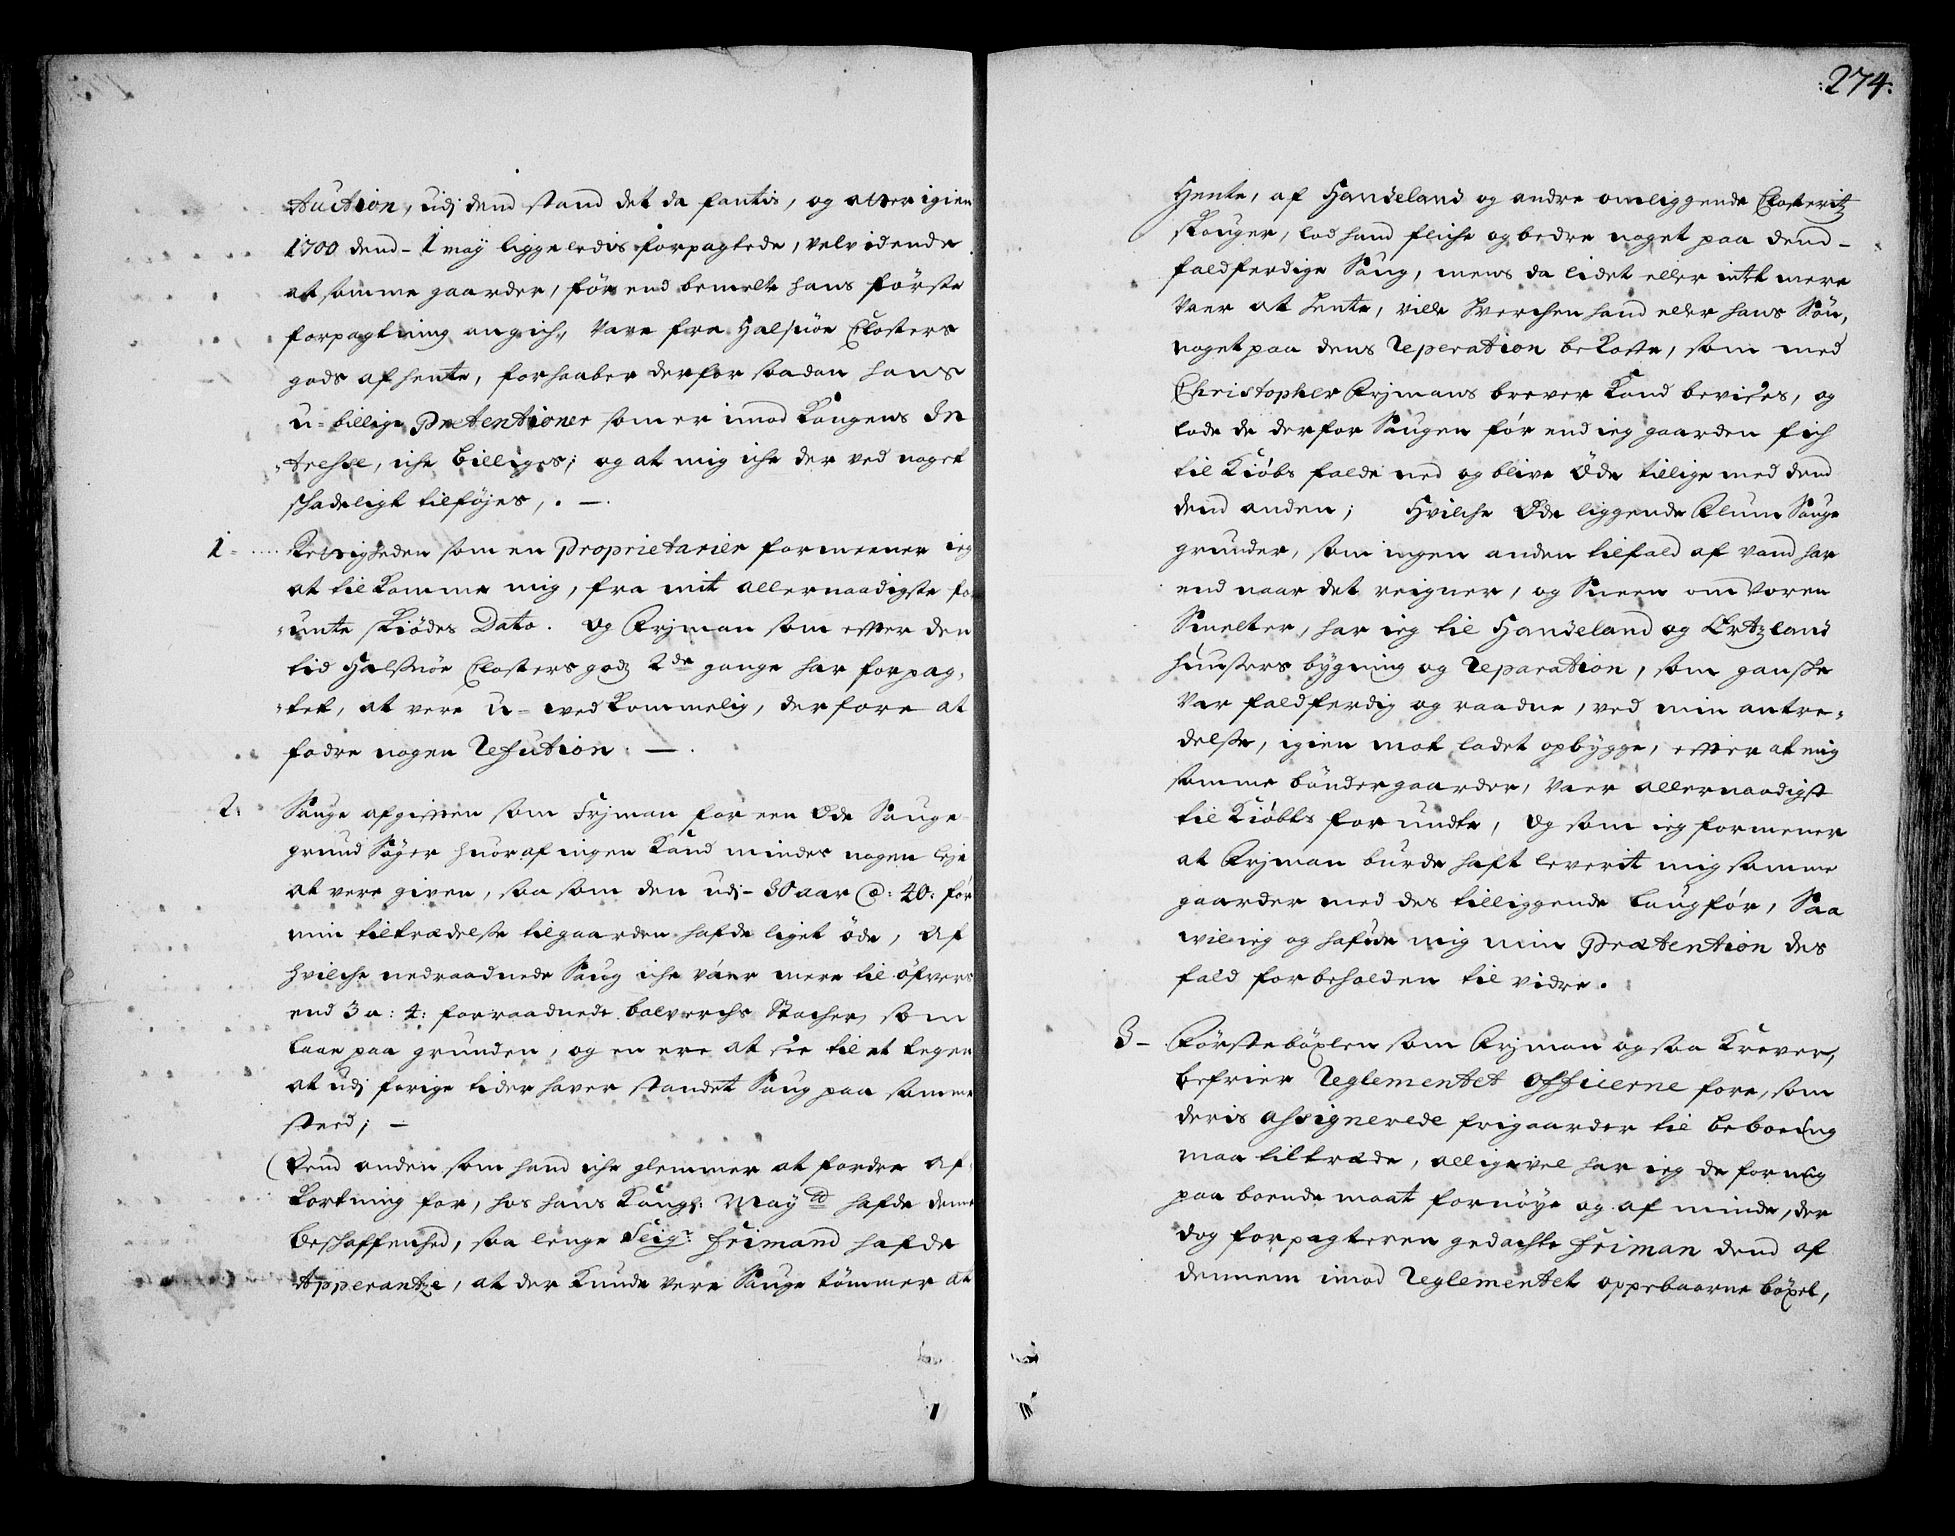 Auction, udj dend stand det da fantis, og atter igien
1700 dend - 1 maÿ liggeledis forpagtede, velvidende
at samme gaarder, før end bemelte hans første
forpagtning angich, vare fra Halsnöe Closters
gods afhente, forhaaber derfor saadan hans
u-billige Prætentioner som er imod Kongens In
tresse, iche billiges; og at mig iche der ved noget
schadeligt tilföjes, . —
1 - Rettigheden som en Proprietarier formeener ieg
at tilkomme mig, fra mit allernaadigste for
unte skiödes Dato. Og Frjman som effter den
tid Halsnöe Closters godz 2de gange har forpag,
tet, at vere u-wedkommelig, derfore at
fodre nogen Refution. —.
2: Sauge afgifften som Frjman for een Øde Sauge
grund Søger huoraf ingen Kand mindes nogen leje
at vere given, saa som den udj - 30 aar @: 40: før
min tiltrædelse til gaarden hafde liget öde, Af
hvilche nedraadnede Saug iche váer mere til öfvers
end 3 a: 4: forraadnede bolverchs Stocher, som
laae paa grunden, og en ere at see til et tegen
at udj forige tider haver standet Saug paa samme
sted; —
(Dend anden som hand iche glemmer at fordre af,
kortning for, hos hans Kongl: Mayts hafde denne
beschaffenhed, saa lenge Seigr. Friman hafde
Apperantze, at der Kunde vere Sauge tömmer at
274.
Hente, af Handeland og andre omliggende Closteritz
skouger, lod hand fliche og bedre noget paa dend -
faldferdige Saug, mens da lidet eller intet mere
Vaer at hente, ville hverchen hand eller hans Sön,
noget paa dens Reperation bekoste, som med
Christopher Frjmans brever Kand bevises, og
lode de derfor Saugen før end ieg gaarden fich
til Kiöbs falde ned og blive Öde tillige med dend
dend anden; Hvilche Øde liggende Sauge
grunder, som ingen anden tilfald af vand har
end naar det reigner, og Sneen om Voren
Smelter, har ieg til Handeland og
huusers bygning og Reparation, som gansche
var faldferdig og raadne, ved min antre,
delse, igien mot ladet opbygge, effter at mig
samme böndergaarder, Vaer allernaadigst
til Kiöbbs forundte, Og som ieg formener
at Frjman burde haft leverit mig samme
gaarder med des tilliggende laugför, Saa
wil ieg og hafue mig min Prætention des
fald forbeholden til vidre.
3 - Förstebøxlen som Frjman og saa Krever,
befrier Reglementet Officierne fore, som
deris assignerede frigaarder til beboeing
maa tiltræde, alligevel har ieg de for mig
paa boende maat fornöye og af minde, der
dog forpagteren gedachte Friman dend af
dennem imod Reglementet oppebaarne böxel,